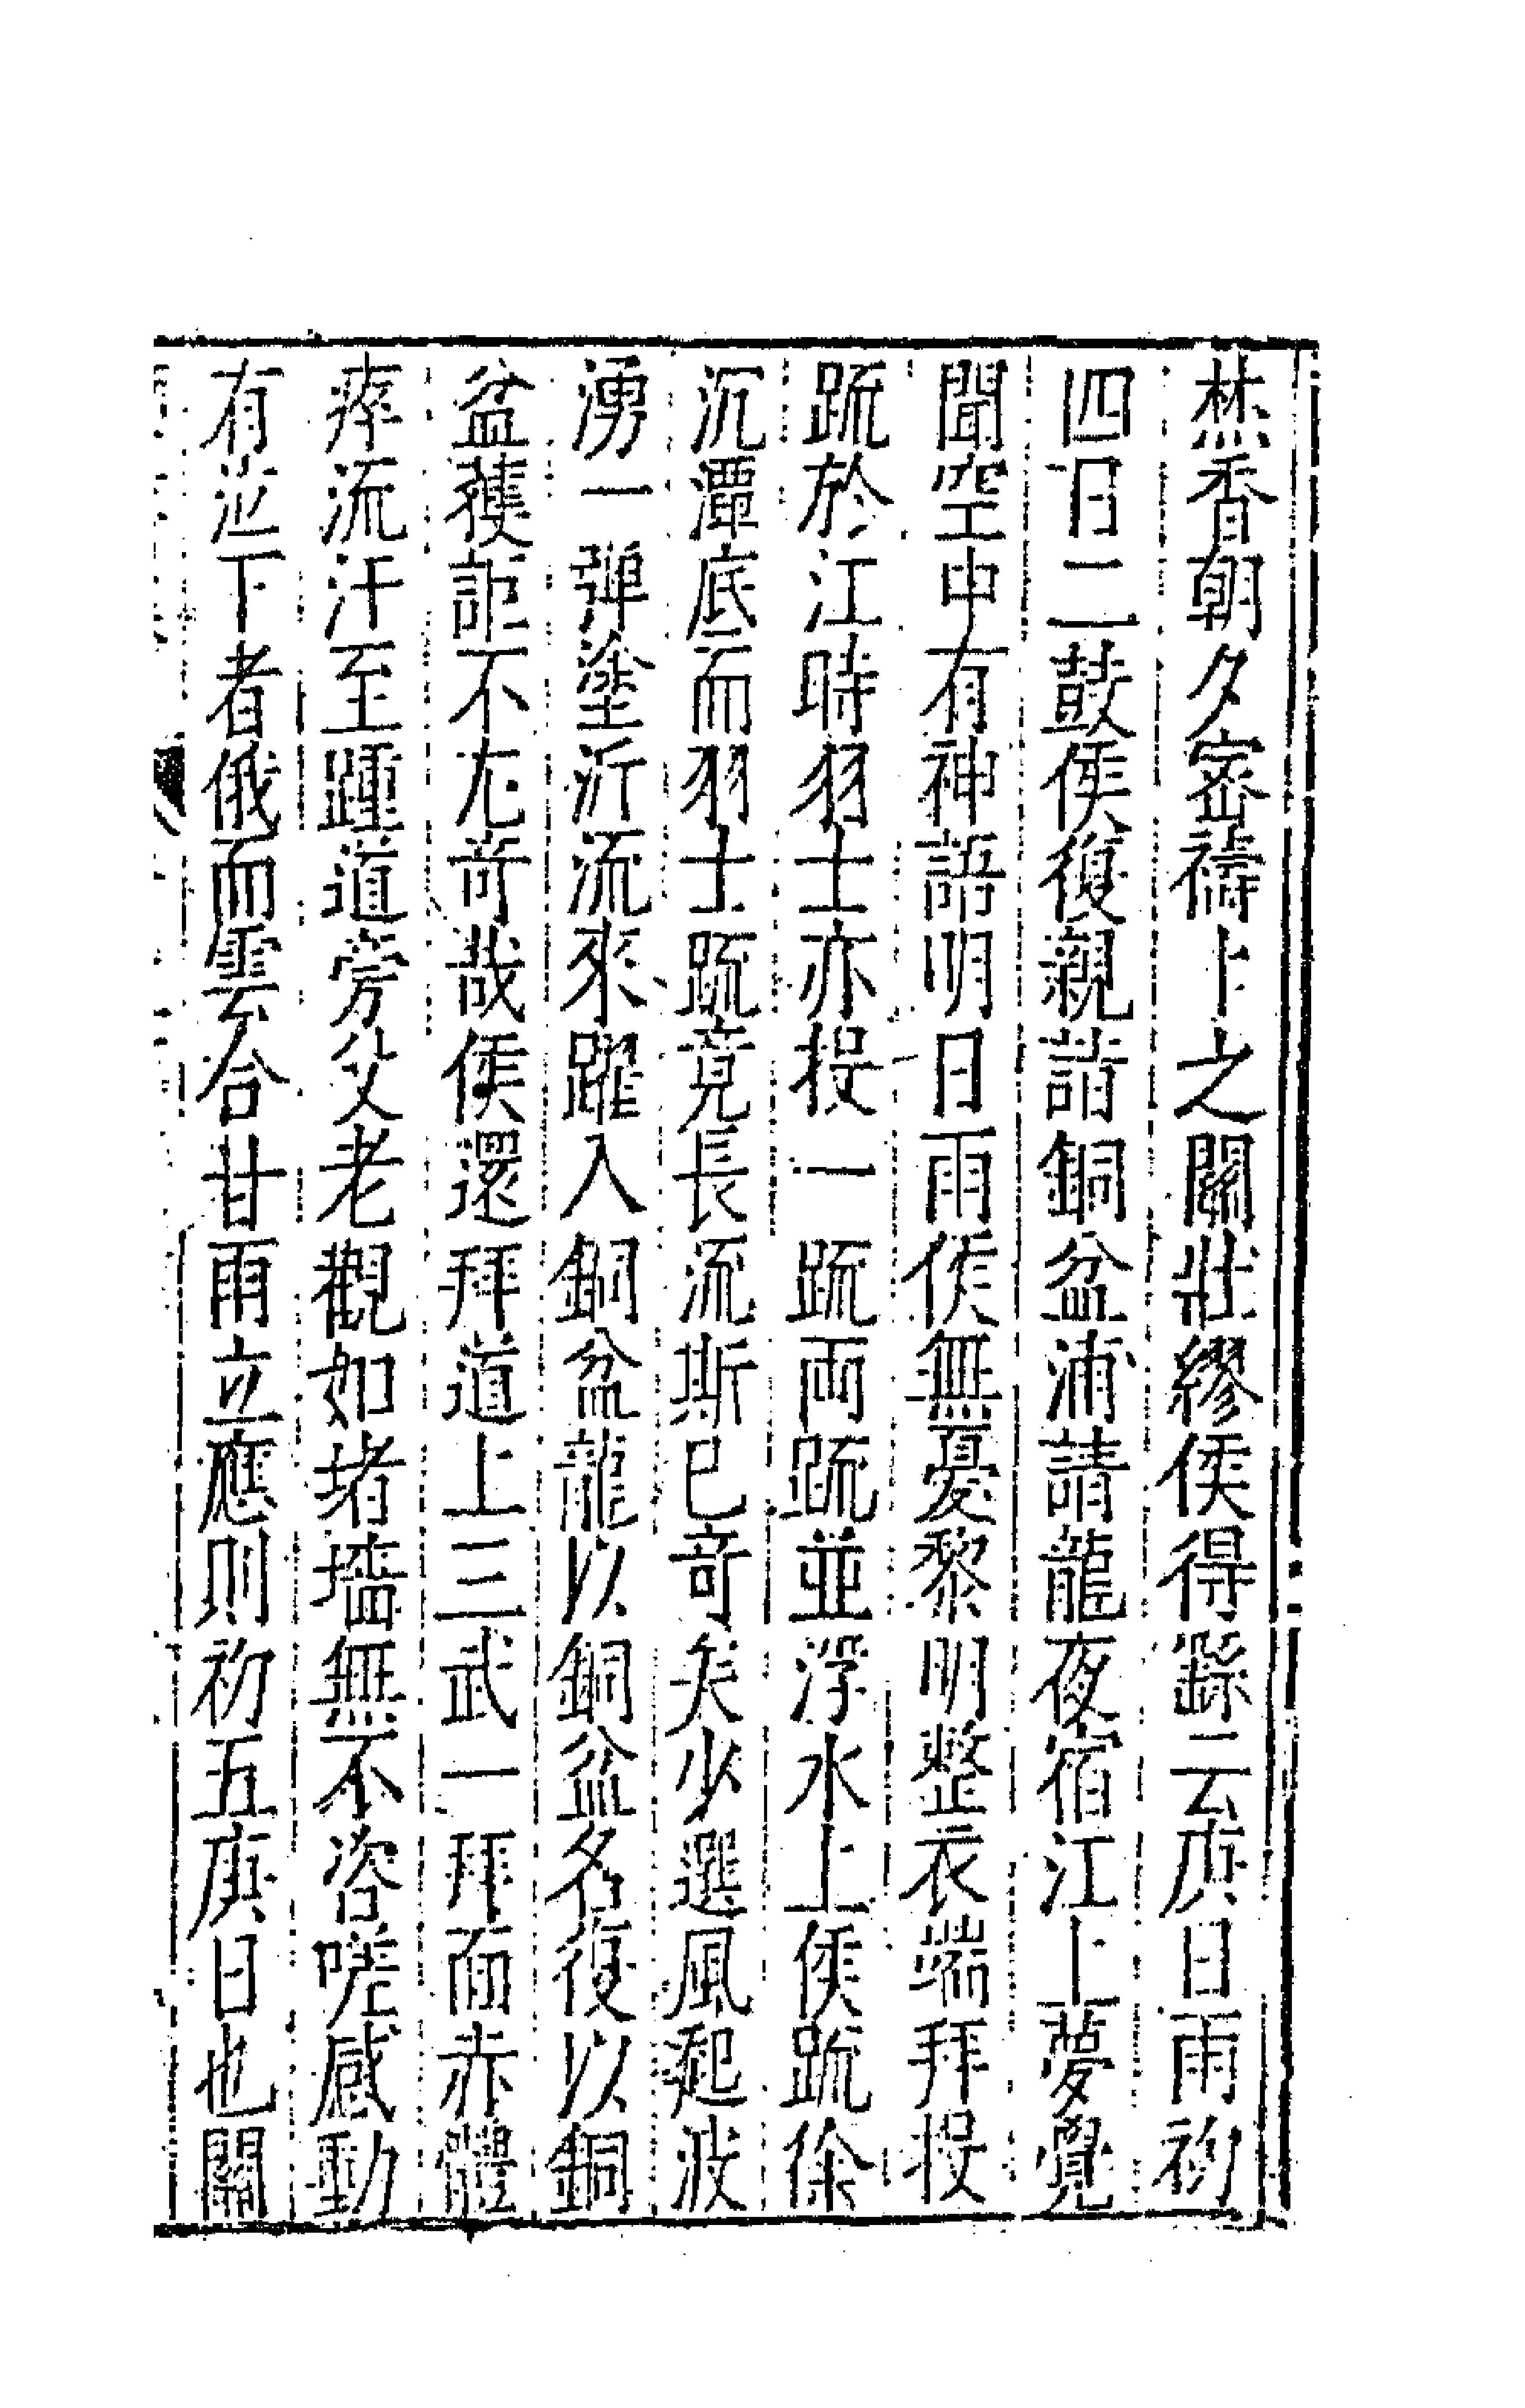 焚香朝夕密禱卜之關壯繆侯得繇云庚日雨初
四日二鼓侯復親詣銅盆浦請龍夜宿江上夢覺
聞空中有神語明日雨侯無憂黎明整衣端拜投
䟽於江時羽士亦投一䟽兩䟽並浮水上侯䟽徐
沉潭底而羽士䟽竟長流斯已奇矣少選風起波
湧一彈塗沂流來躍入銅盆龍以銅盆名復以銅
盆獲詎不尤奇哉侯還拜道上三武一拜面赤體
瘁流汗至踵道旁父老觀如堵墻無不咨嗟感動
有泣下者俄而雲合甘雨立應則初五庚日也關